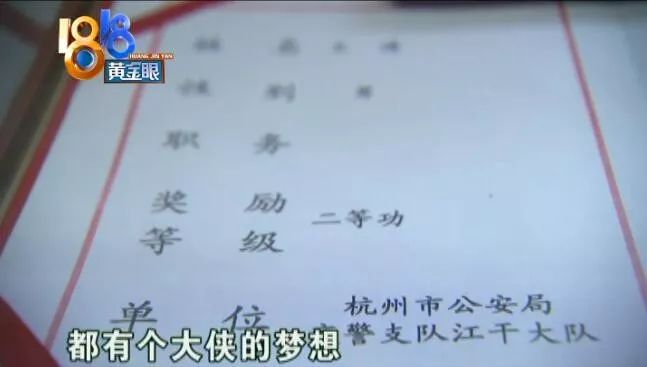 1818
HUANG JIN YAN
黄金眼
性 别 男
职 务
奖 励
等 级 二等功
单 位 杭州市公安局
警支队江干大队
都有个大侠的梦想